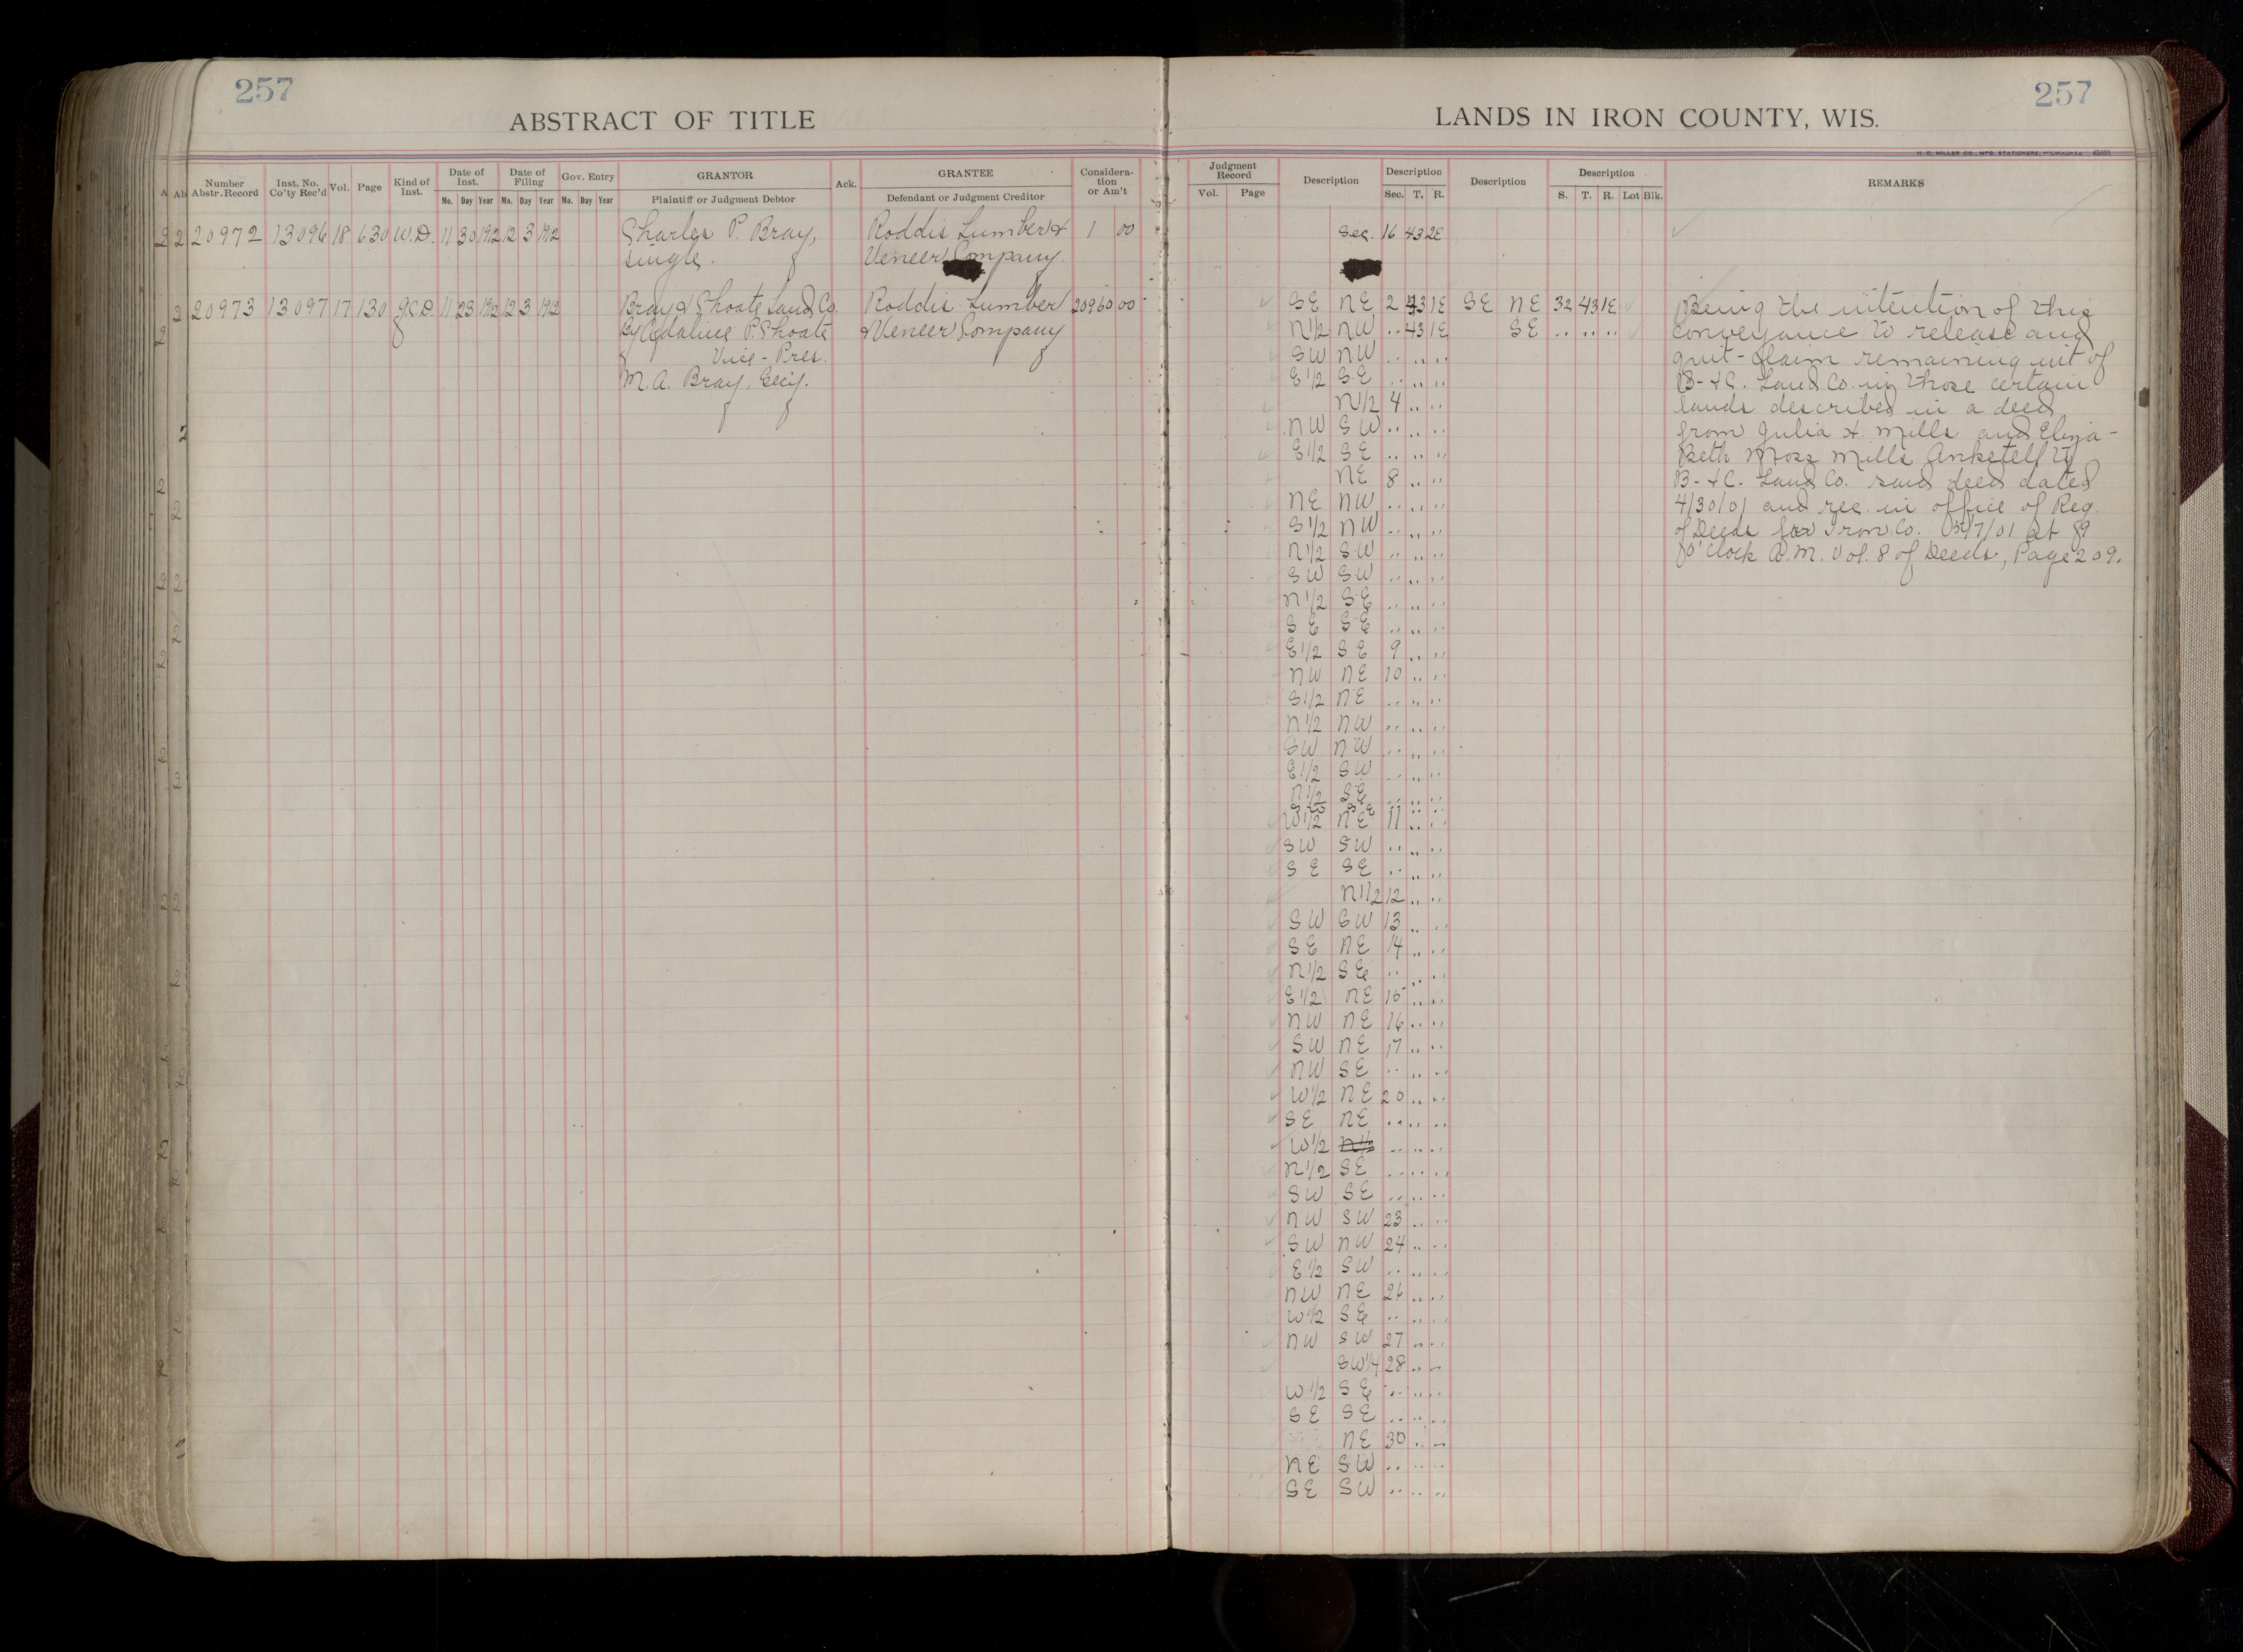 257
ABSTRACT OF TITLE
Number Abstr. Record
Inst. No. Co'ty Rec'd
Vol.
Page
Kind of Inst.
Date of Inst.
Date of Filing
Gov. Entry
GRANTOR
Ack.
GRANTEE
Consideration or Am't
Mo. Day Year Mo. Day Year Mo. Day Year
Plaintiff or Judgment Debtor
Defendant or Judgment Creditor
20972 13096 18 630 W.D. 11 30 1912 12 3 1912 Charles P. Bray, Roddis Lumber & 1 00
single. Veneer Company
20973 13097 17 130 Q.C.D. 11 23 1912 12 3 1912 Bray & Choate Land Co. Roddis Lumber 20960 00
by Adaline P. Choate & Veneer Company
Vice-Pres.
M. A. Bray, Secy.
257
LANDS IN IRON COUNTY, WIS.
H. C. MILLER CO., MFG. STATIONERS, MILWAUKEE
Judgment Record
Description
Description
Description
Description
REMARKS
Vol. Page Sec. T. R. S. T. R. Lot Blk.
Sec. 16 43 2E
SE NE 2 43 1E SE NE 32 43 1E
N1/2 NW .. 43 1E SE .. .. ..
SW NW .. .. ..
E1/2 SE .. .. ..
N1/2 4 .. ..
NW SW .. .. ..
E1/2 SE .. .. ..
NE 8 .. ..
NE NW .. .. ..
S1/2 NW .. .. ..
N1/2 SW .. .. ..
SW SW .. .. ..
N1/2 SE .. .. ..
SE SE .. .. ..
E1/2 SE 9 .. ..
NW NE 10 .. ..
S1/2 NE .. .. ..
N1/2 NW .. .. ..
SW NW .. .. ..
E1/2 SW .. .. ..
N1/2 SE .. .. ..
SE .. .. ..
W1/2 NE 11 .. ..
SW SW .. .. ..
SE SE .. .. ..
N1/2 12 .. ..
SW SW 13 .. ..
SE NE 14 .. ..
N1/2 SE .. .. ..
E1/2 NE 15 .. ..
NW NE 16 .. ..
SW NE 17 .. ..
NW SE .. .. ..
W1/2 NE 20 .. ..
SE NE .. .. ..
W1/2 N1/2 .. .. ..
N1/2 SE .. .. ..
SW SE .. .. ..
NW SW 23 .. ..
SW NW 24 .. ..
E1/2 SW .. .. ..
NW NE 26 .. ..
W1/2 SE .. .. ..
NW SW 27 .. ..
SW1/4 28 .. ..
W1/2 SE .. .. ..
SE SE .. .. ..
NE 30 .. ..
NE SW .. .. ..
SE SW .. .. ..
Being the intention of this
conveyance to release and
quit-claim remaining int of
B-&C. Land Co. in those certain
lands described in a deed
from Julia H. Mills and Eliza-
beth Moss Mills Anketell to
B-&C. Land Co. said deed dated
4/30/01 and rec. in office of Reg.
of Deeds for Iron Co. 7/01 at 9
o'clock A.M. Vol. 8 of Deeds, Page 209.